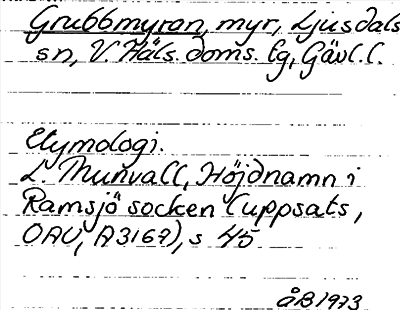 Grubbmyran, myr, Ljusdals
sn, V. Häls. doms. lg, Gävl. l.
Etymologi.
L. Munvall, Höjdnamn i
Ramsjö socken (uppsats,
OAU, A3167), s 45
åB 1973